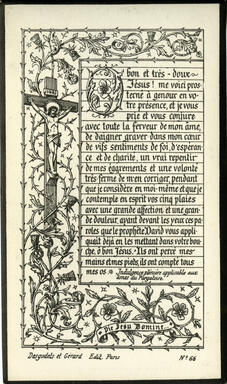 O bon et très-doux
Jésus! me voici pros
terné à genoux en vo
tre présence, et je vous
prie et vous conjure
avec toute la ferveur de mon âme,
de daigner graver dans mon cœur
de vifs sentiments de foi, d'espéran
ce et de charité, un vrai repentir
de mes égarements et une volonté
très ferme de m'en corriger, pendant
que je considère en moi-même et que je
contemple en esprit vos cinq plaies
avec une grande affection et une gran
de douleur, ayant devant les yeux ces pa
roles que le prophète David vous appli
quait déjà en les mettant dans votre bou
che, ô bon Jésus. Ils ont percé mes
mains et mes pieds, ils ont compté tous
mes os. Indulgence plénière applicable aux
âmes du Purgatoire.
Pie Jesu Domine
Dargodels et Gérard Edit. Paris Nº 66